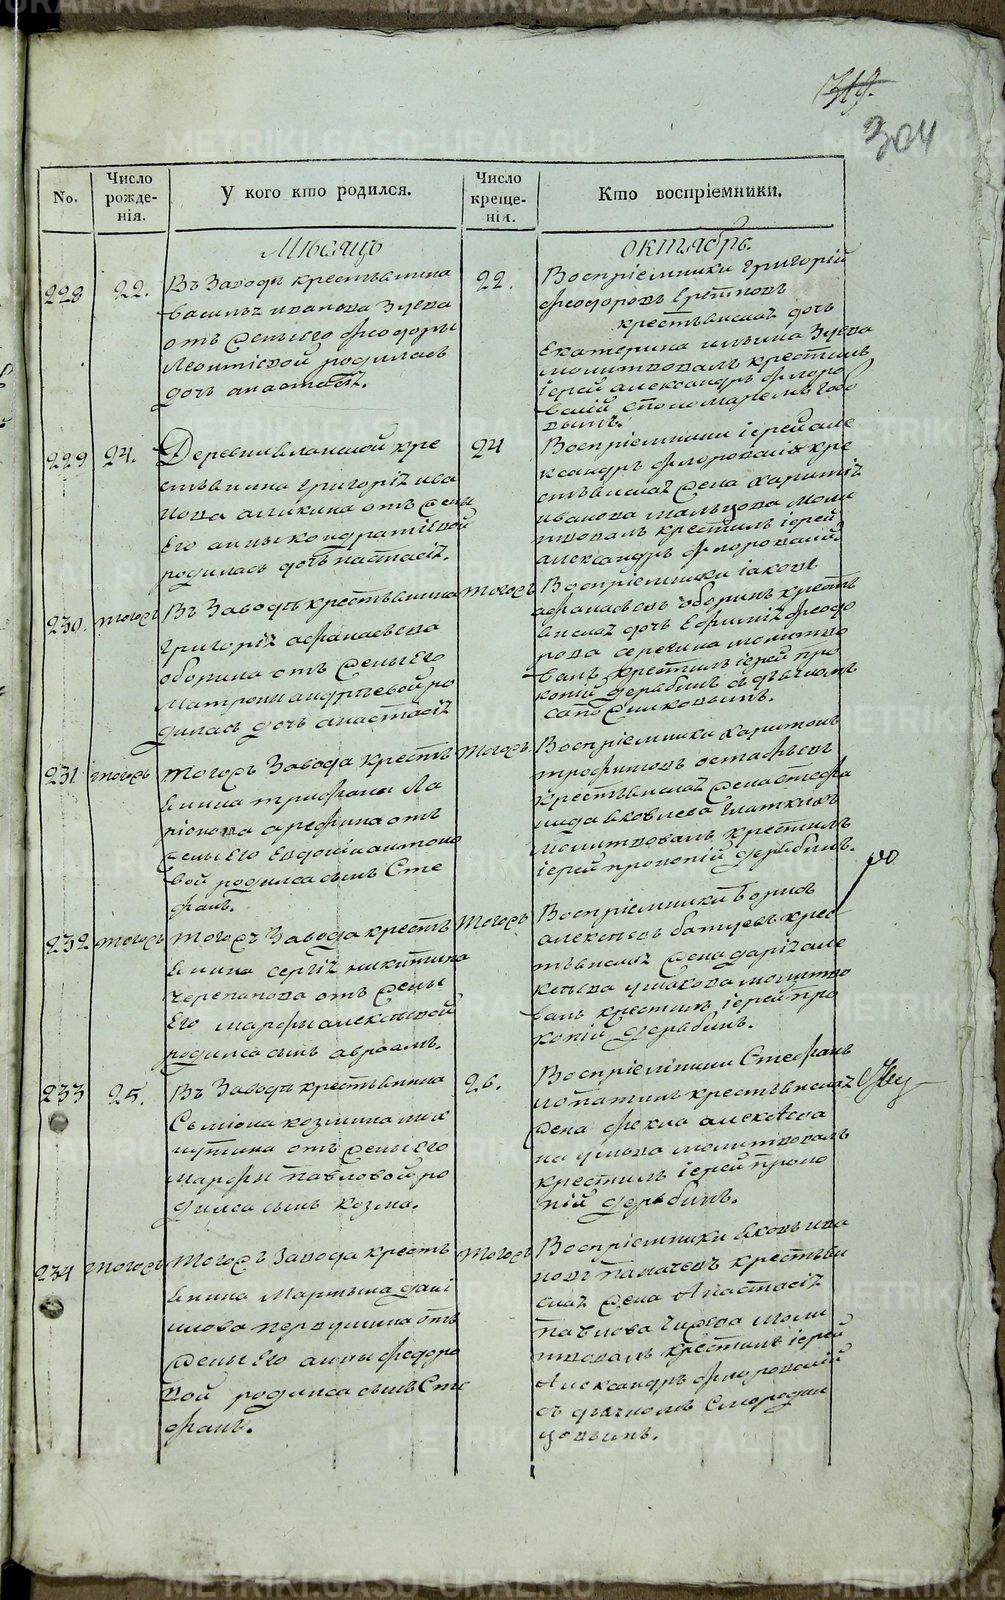 319.
304
No.
Число рожденія.
У кого кто родился.
Число крещенія.
Кто воспріемники.
Мѣсяцъ
октябрь.
228
22.
Въ Заводѣ крестьянина
василья иванова Зуева
отъ жены его феодоры
Леонтіевой родилась
дочь анастасія.
22.
Воспріемники григорій
феодоровъ
крестьянская дочь
Екатерина ильина Зуева
молитвовалъ крестилъ
іерей александръ флоро
вскій
229
24.
Деревни кре
стьянина григорія ива
нова аликина отъ жены
Его анны кондратіевой
родилась дочь настасія.
24
Воспріемники іерей але
ксандръ флоровскій кре
стьянская жена харитинія
иванова мальцова моли
твовалъ крестилъ іерей
александръ флоровскій
230.
тогожъ
Въ Заводѣ крестьянина
григорія афанасьева
оборина отъ жены Его
Матроны андреевой ро
дилась дочь анастасія
тогожъ
Воспріемники іаковъ
афанасьевъ оборинъ крестья
нская дочь Ефимія феодо
рова серегина молитво
валъ крестилъ іерей про
копій дерябинъ съ дьячкомъ
231
тогожъ
тогожъ Завода кресть
янина трифона Ла
ріонова арефина отъ
жены Его Евдокіи антоно
вой родился сынъ Сте
фанъ.
тогожъ
Воспріемники харитонъ
трофимовъ остафьевъ
крестьянская жена стефа
нида яковлева
молитвовалъ крестилъ
іерей прокопій дерябинъ.
232
тогожъ
тогожъ Завода кресть
янина сергія никитина
Черепанова отъ жены
Его марфы алексѣевой
родился сынъ авраамъ.
тогожъ
Воспріемники борисъ
алексѣевъ батуевъ крес
тьянская жена дарія але
ксѣева ушакова молитво
валъ крестилъ іерей про
копій дерябинъ.
233
25.
Въ Заводѣ крестьянина
Семіона козмина
отъ жены Его
марфы павловой ро
дился сынъ козма.
26.
Воспріемники Стефанъ
лопатинъ крестьянская
жена фекла алексѣева
молитвовалъ
крестилъ іерей проко
пій дерябинъ.
234
тогожъ
тогожъ Завода кресть
янина Мартына дані
илова первушина отъ
жены Его анны федоро
вой родился сынъ Сте
фанъ.
тогожъ
Воспріемники яковъ ива
новъ крестьян
ская жена Анастасія
павлова моли
твовалъ крестилъ іерей
Александръ флоровскій
съ дьячкомъ Смородин
цовымъ.
METRIKI.GASO-URAL.RU